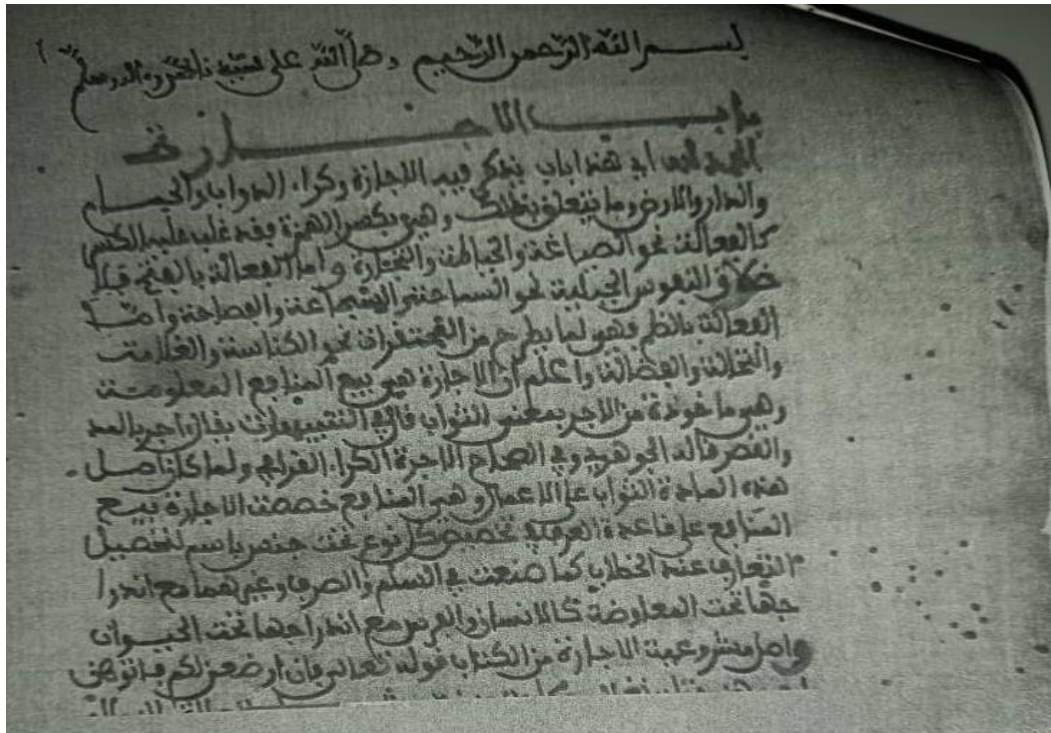 بسم الله الرحمن الرحيم وصلى الله على سيدنا محمد وآله وسلم
باب الاجارة
اي هذا باب يذكر فيه الاجارة وكراء الدواب والحمام
والدار والارض وما يتعلق بذلك وهي بكسر الهمزة وقد غلب عليه الكسر
كالفعالة نحو الصناعة والخياطة والتجارة واما الفعالة بالفتح
النفوس الجبلية نحو السماحة والشجاعة والفصاحة واما
الفعالة بالظم فهي لما يطرح من المحتقرات نحو الكناسة والقلامة
والنخالة والفضالة واعلم ان الاجارة هي بيع المنافع المعلومة
وهي ماخوذة من الاجر بمعنى الثواب قال في التنبيهات يقال اجر بالمد
والقصر قاله الجوهري وفي الصحاح الاجرة الكراء القرافي ولما كان اصل
هذه المادة الثواب على الاعمال وهي المنافع خصصت الاجارة ببيع
المنافع على قاعدة العرف في تخصيص كل نوع تحت جنس باسم لتحصيل
التعارف عند الخطاب كما صنعت في السلم والصرف وغيرهما مع اندرا
جها تحت المعاوضة كالانسان والفرس مع اندراجها تحت الحيوان
واصل مشروعية الاجارة من الكتاب قوله تعالى فان ارضعن لكم فاتوهن